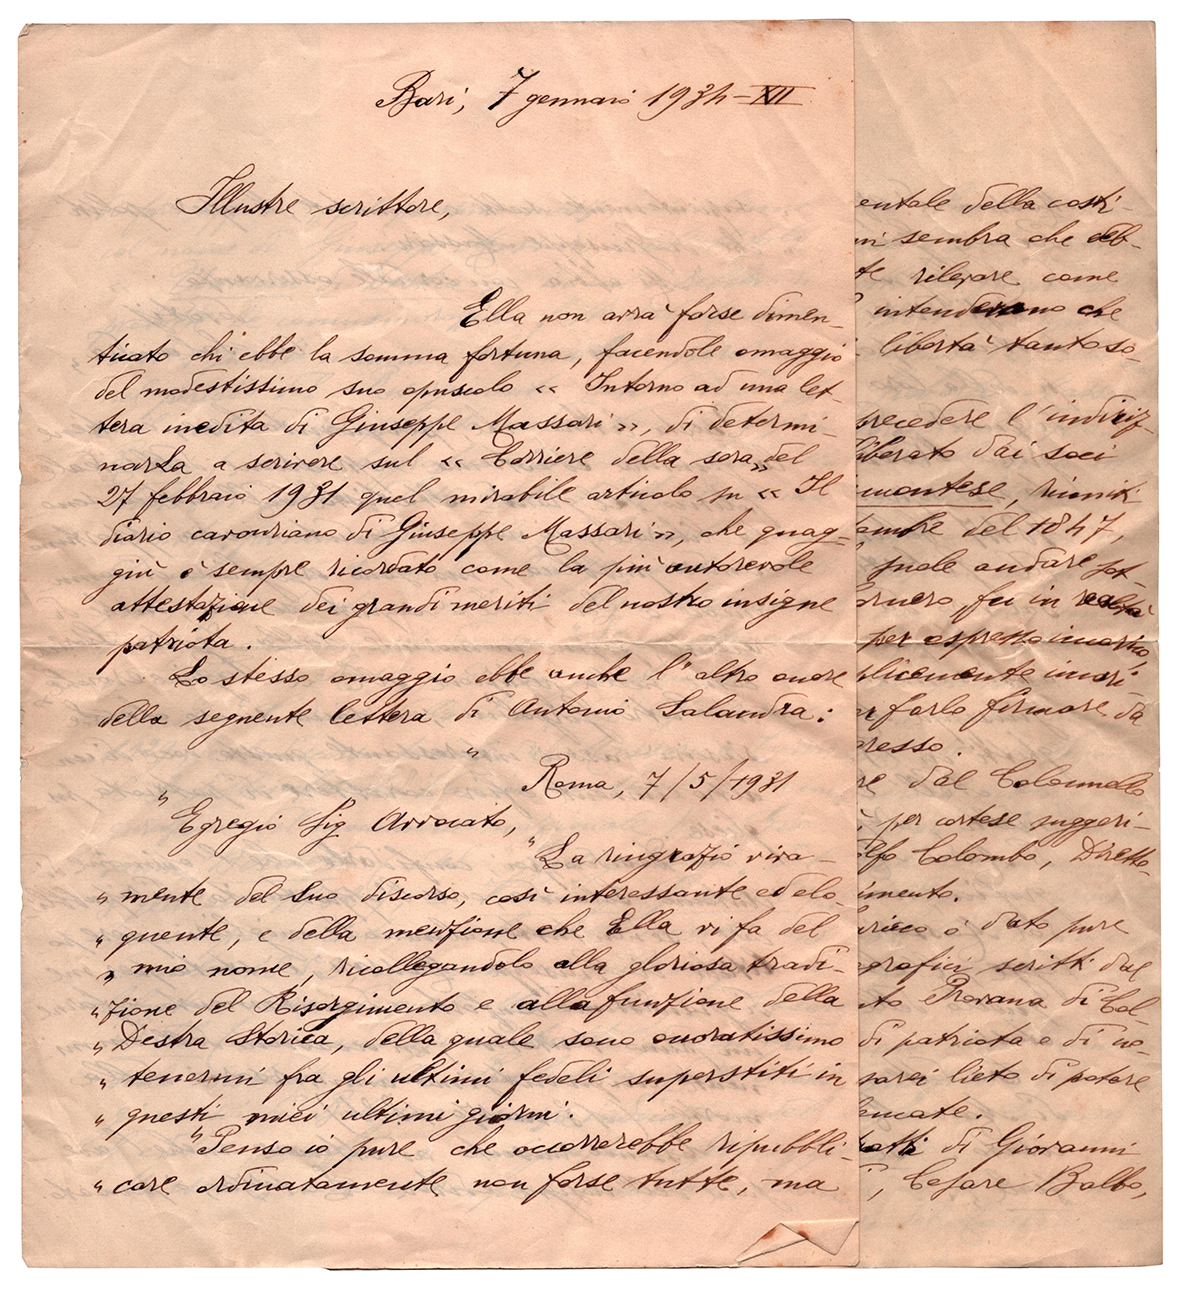 Bari, 7 gennaio 1934-XII
Illustre scrittore,
Ella non avrà forse dimen-
ticato chi ebbe la somma fortuna, facendole omaggio
del modestissimo suo opuscolo « Intorno ad una let-
tera inedita di Giuseppe Massari », di determi-
narLa a scrivere sul « Corriere della sera » del
27 febbraio 1931 quel mirabile articolo su « Il
diario cavouriano di Giuseppe Massari », che quag-
giù è sempre ricordato come la più autorevole
attestazione dei grandi meriti del nostro insigne
patriota.
Lo stesso omaggio ebbe anche l'altro onore
della seguente lettera di Antonio Salandra:
" Roma, 7/5/1931
" Egregio Sig Avvocato,
" La ringrazio viva-
" mente del Suo discorso, così interessante ed elo-
" quente, e della menzione che Ella vi fa del
" mio nome, ricollegandolo alla gloriosa tradi-
" zione del Risorgimento e alla funzione della
" Destra Storica, della quale sono onoratissimo
" tenermi fra gli ultimi fedeli superstiti in
" questi miei ultimi giorni.
" Penso io pure che occorrerebbe ripubbli-
" care ordinatamente non forse tutte, ma
entale della costi
mi sembra che deb-
te rilevare come
intendevano che
libertà tanto so-
precedere l'indiriz-
liberato dai soci
montese, riuniti
embre del 1847,
quale andare sot-
fu in realtà
per espresso incarico,
plicemente incari-
farlo firmare da
gresso.
re dal Colonnello
per cortese suggeri-
lfo Colombo, Diretto-
imento.
arico è dato pure
grafici scritti dal
to Provana di Col-
di patriota e di uo-
sarei lieto di potere
encate.
dotti di Giovanni
, Cesare Balbo,